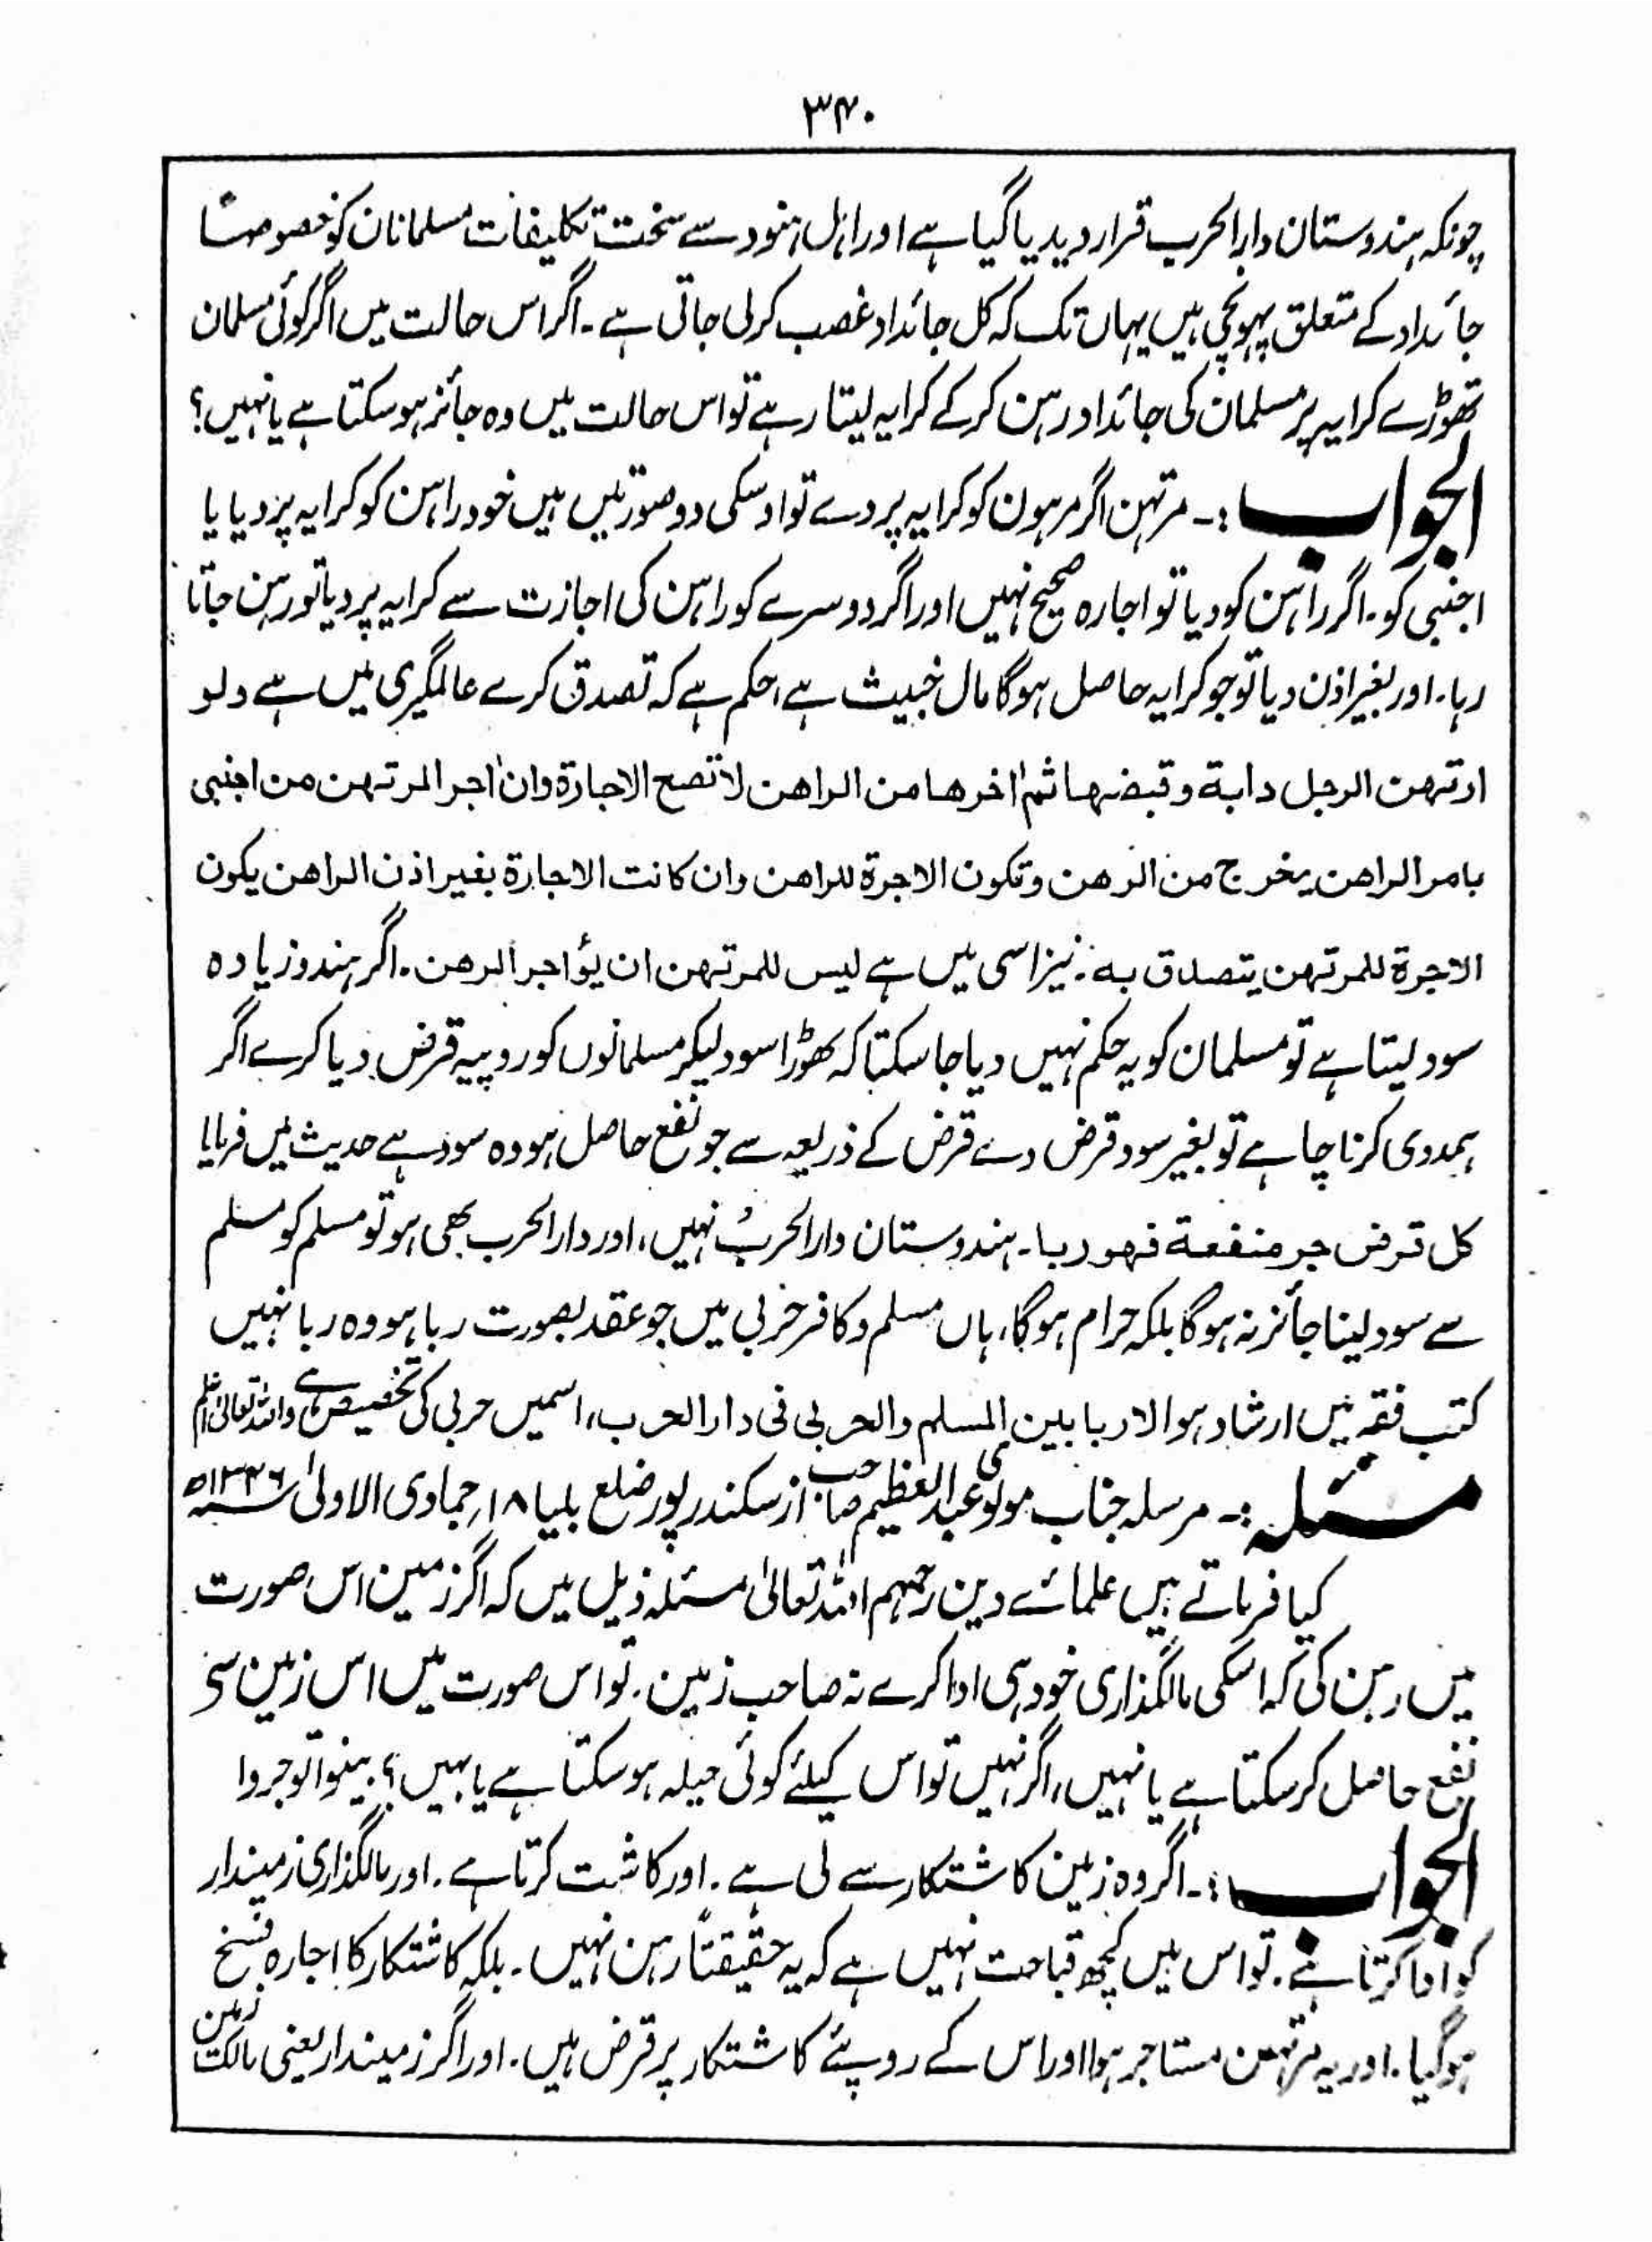 ۳۴۰
چونکہ ہندوستان دارالحرب قرار دیدیا گیا ہے اور اہل ہنود سے سخت تکلیفات مسلمانان کو خصوصًا
جائداد کے متعلق پہونچی ہیں یہاں تک کہ کل جائداد غصب کرلی جاتی ہے۔ اگر اس حالت میں اگر کوئی مسلمان
تھوڑے کرایہ پر مسلمان کی جائداد رہن کرکے کرایہ لیتا رہے تو اس حالت میں وہ جائز ہوسکتا ہے یا نہیں؟
الجواب :۔ مرتہن اگر مرہون کو کرایہ پر دے تو اوسکی دو صورتیں ہیں خود راہن کو کرایہ پر دیا یا
اجنبی کو۔ اگر راہن کو دیا تو اجارہ صحیح نہیں اور اگر دوسرے کو راہن کی اجازت سے کرایہ پر دیا تو رہن جاتا
رہا۔ اور بغیر اذن دیا تو جو کرایہ حاصل ہوگا مال خبیث ہے، حکم ہے کہ تصدق کرے عالمگیری میں ہے ولو
ارتھن الرجل دابة وقبضھا ثم اٰخرھا من الراھن لا تصح الاجارة وان اٰجر المرتھن من اجنبی
بامر الراھن یخرج من الرھن وتکون الاجرة للراھن وان کانت الاجارة بغیر اذن الراھن یکون
الاجرة للمرتھن یتصدق بہ۔ نیز اسی میں ہے لیس للمرتھن ان یؤاجر الرھن۔ اگر ہندو زیادہ
سود لیتا ہے تو مسلمان کو یہ حکم نہیں دیا جاسکتا کہ تھوڑا سود لیکر مسلمانوں کو روپیہ قرض دیا کرے اگر
ہمدردی کرنا چاہے تو بغیر سود قرض دے قرض کے ذریعہ سے جو نفع حاصل ہو وہ سود ہے حدیث میں فرمایا
کل قرض جر منفعة فھو ربا۔ ہندوستان دارالحرب نہیں، اور دارالحرب بھی ہو تو مسلم کو مسلم
سے سود لینا جائز نہ ہوگا بلکہ حرام ہوگا، ہاں مسلم و کافر حربی میں جو عقد بصورت ربا ہو وہ ربا نہیں
کتب فقہ میں ارشاد ہوا لا ربا بین المسلم والحربی فی دار الحرب، اسمیں حربی کی تخصیص ہے واللہ تعالیٰ اعلم
مسئلہ :۔ مرسلہ جناب مولوی عبدالعظیم صاحب از سکندرپور ضلع بلیا ۱۸ جمادی الاولیٰ سنہ ۱۳۴۶ھ
کیا فرماتے ہیں علمائے دین رحمہم اللہ تعالیٰ مسئلہ ذیل میں کہ اگر زمین اس صورت
میں رہن کی کہ اسکی مالگذاری خود ہی ادا کرے نہ صاحب زمین۔ تو اس صورت میں اس زمین سی
نفع حاصل کرسکتا ہے یا نہیں، اگر نہیں تو اس کیلئے کوئی حیلہ ہوسکتا ہے یا نہیں؟ بینوا توجروا
الجواب :۔ اگر وہ زمین کاشتکار سے لی ہے۔ اور کاشت کرتا ہے۔ اور مالگذاری زمیندار
کو ادا کرتا ہے۔ تو اس میں کچھ قباحت نہیں ہے کہ یہ حقیقتًا رہن نہیں۔ بلکہ کاشتکار کا اجارہ فسخ
ہوگیا۔ اور یہ مرتہن مستاجر ہوا اور اس کے روپئے کاشتکار پر قرض ہیں۔ اور اگر زمیندار یعنی مالک زمین